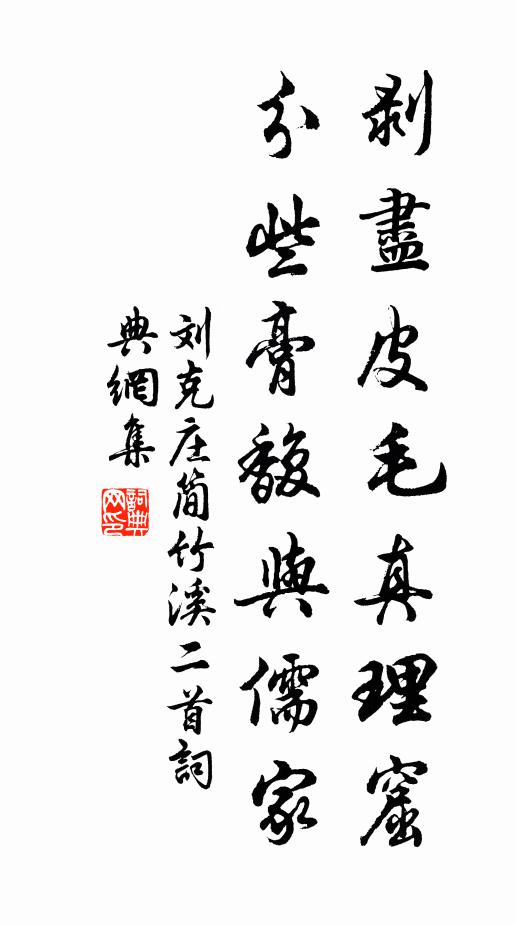 剥盡皮毛真理窟
分些膏馥與儒家
刘克庄简竹溪二首詞
典網集
詞典
网印